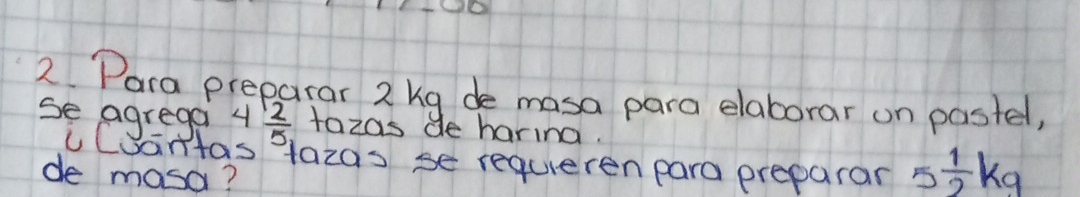 2. Para preparar 2 kg de masa para elaborar un pastel,
se agrega 4 2/5 tazas de harina.
¿Cuántas tazas se requieren para preparar 5 1/2 kg
de masa?